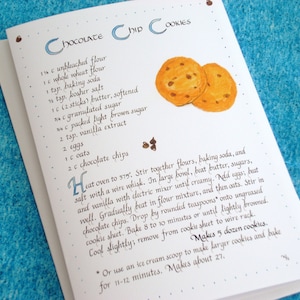 Chocolate Chip Cookies
1 1/4 c unbleached flour
1 c whole wheat flour
1 tsp. baking soda
1/2 tsp. kosher salt
1 c (2 sticks) butter, softened
3/4 c granulated sugar
3/4 c packed light brown sugar
2 tsp. vanilla extract
2 eggs
1 c oats
2 c chocolate chips
Heat oven to 375°. Stir together flours, baking soda, and
salt with a wire whisk. In large bowl, beat butter, sugars,
and vanilla with electric mixer until creamy. Add eggs; beat
well. Gradually beat in flour mixture, and then oats. Stir in
chocolate chips. Drop by rounded teaspoons* onto ungreased
cookie sheet. Bake 8 to 10 minutes or until lightly browned.
Cool slightly; remove from cookie sheet to wire rack.
Makes 5 dozen cookies.
* Or use an ice cream scoop to make larger cookies and bake
for 11-12 minutes. Makes about 27.